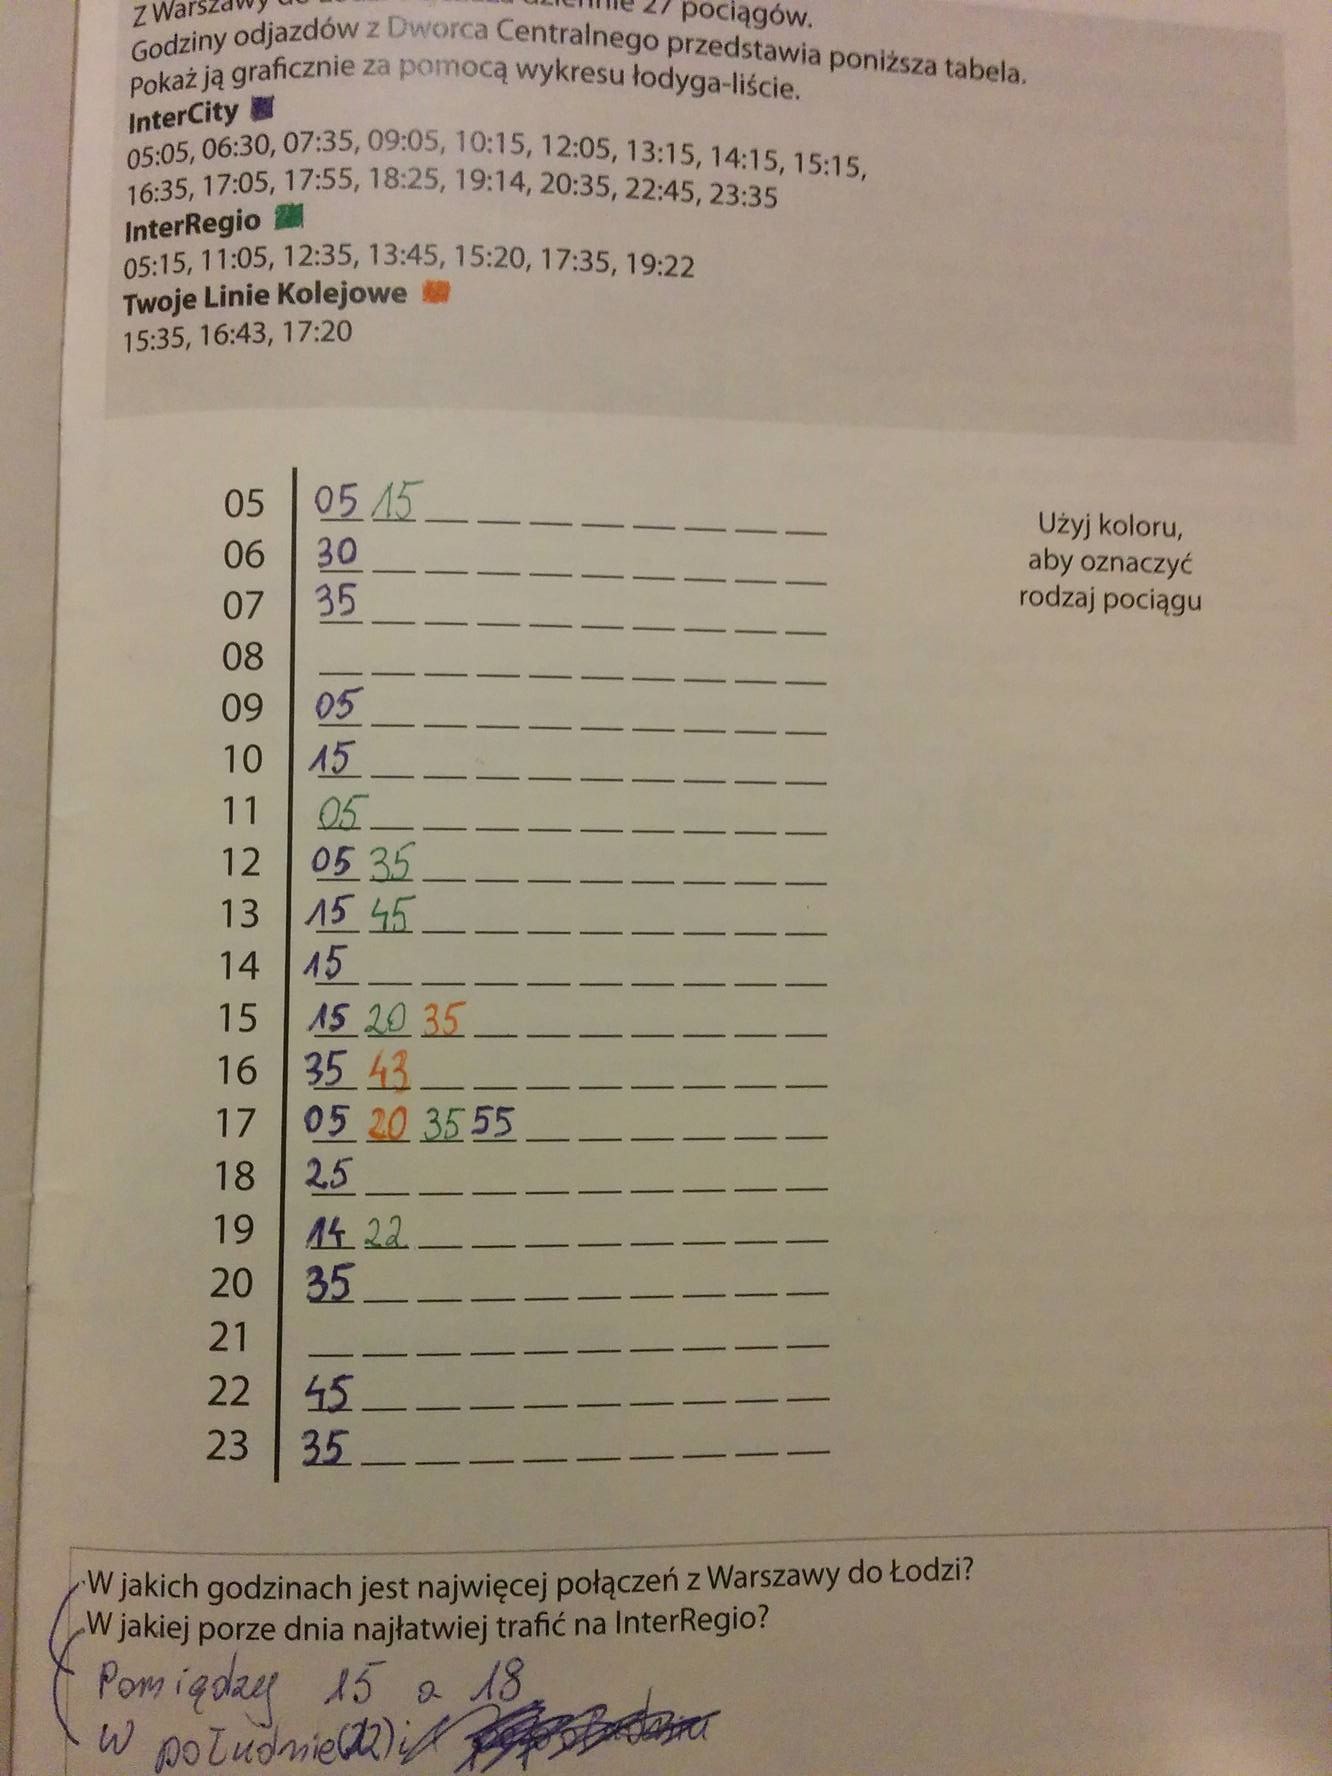 Z Warszawy do dziennie 27 pociągów.
Godziny odjazdów z Dworca Centralnego przedstawia poniższa tabela.
Pokaż ją graficznie za pomocą wykresu łodyga-liście.
InterCity
05:05, 06:30, 07:35, 09:05, 10:15, 12:05, 13:15, 14:15, 15:15,
16:35, 17:05, 17:55, 18:25, 19:14, 20:35, 22:45, 23:35
InterRegio
05:15, 11:05, 12:35, 13:45, 15:20, 17:35, 19:22
Twoje Linie Kolejowe
15:35, 16:43, 17:20
05 05 15
06 30
07 35
08
09 05
10 15
11 05
12 05 35
13 15 45
14 15
15 15 20 35
16 35 43
17 05 20 35 55
18 25
19 14 22
20 35
21
22 45
23 35
Użyj koloru,
aby oznaczyć
rodzaj pociągu
W jakich godzinach jest najwięcej połączeń z Warszawy do Łodzi?
W jakiej porze dnia najłatwiej trafić na InterRegio?
Pomiędzy 15 a 18
W południe